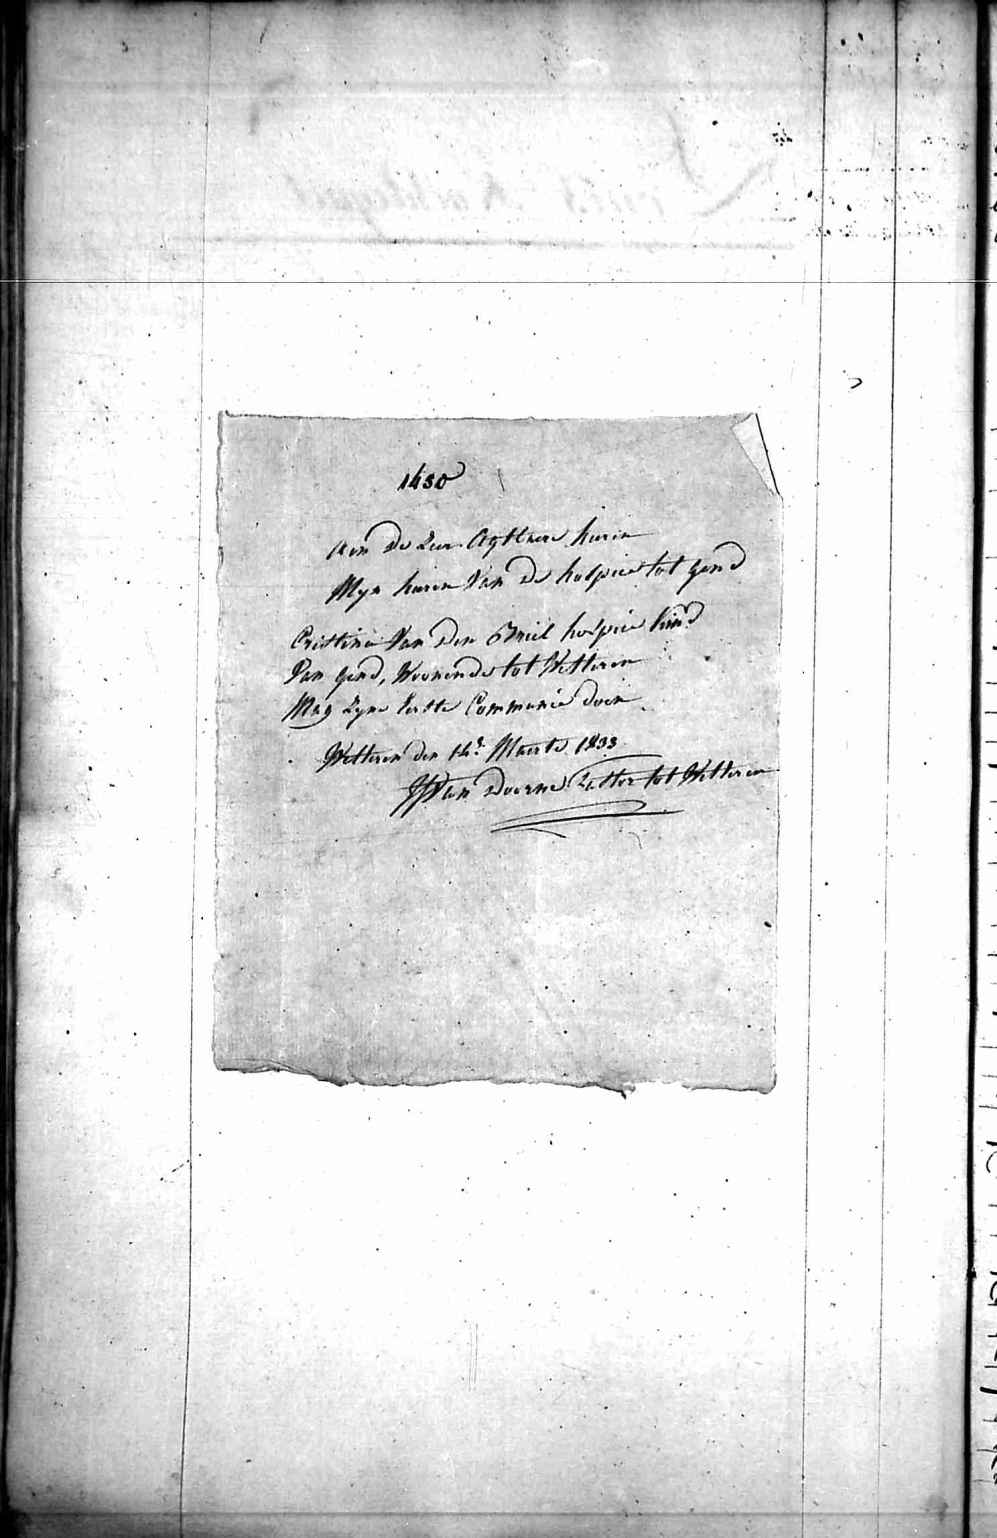 1430
Aen De Zeer Agtbare heeren
Myn heeren Van De hospice tot gend
Cristine Van Den Briel hospice kind
Van gend, Woonende tot Wetteren
Mag Zyne Eerste Communie doen
Wetteren den 14e Maerte 1833
Van Doorne tot Wetteren